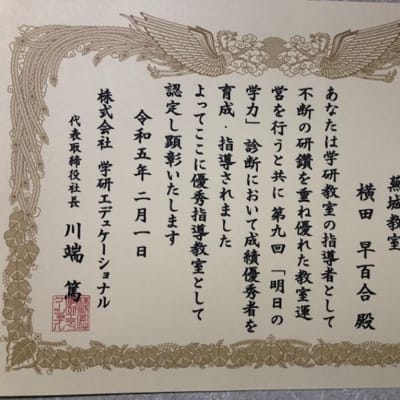 蕪城教室
横田 早百合 殿
あなたは学研教室の指導者として
不断の研鑽を重ね優れた教室運
営を行うと共に 第九回 「明日の
学力」 診断において成績優秀者を
育成・指導されました
よってここに優秀指導教室として
認定し顕彰いたします
令和五年 二月一日
株式会社 学研エデュケーショナル
代表取締役社長 川端 篤